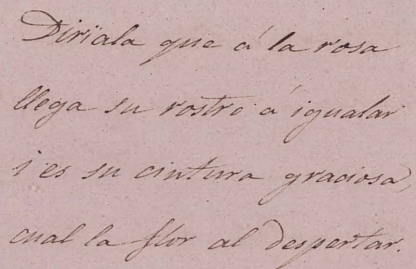 Dirïala que á la rosa
llega su rostro á igualar
i es su cintura graciosa,
cual la flor al despertar.